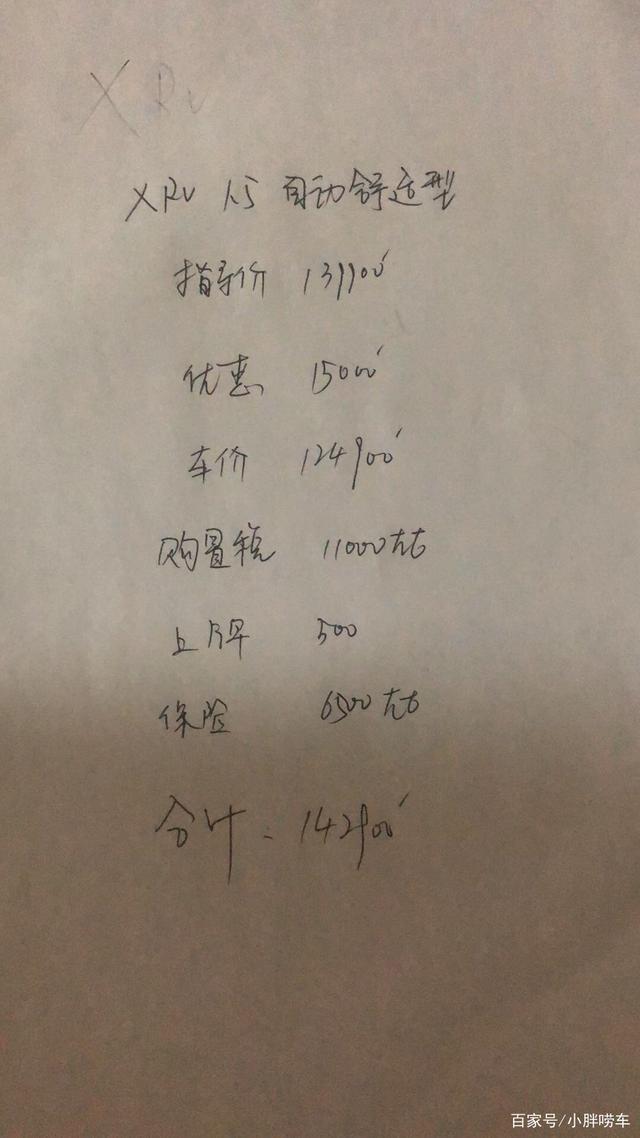 XRV
XRV 1.5 自动舒适型
指导价 139900
优惠 15000
车价 124900
购置税 11000左右
上牌 500
保险 6500左右
合计: 142900
百家号/小胖唠车